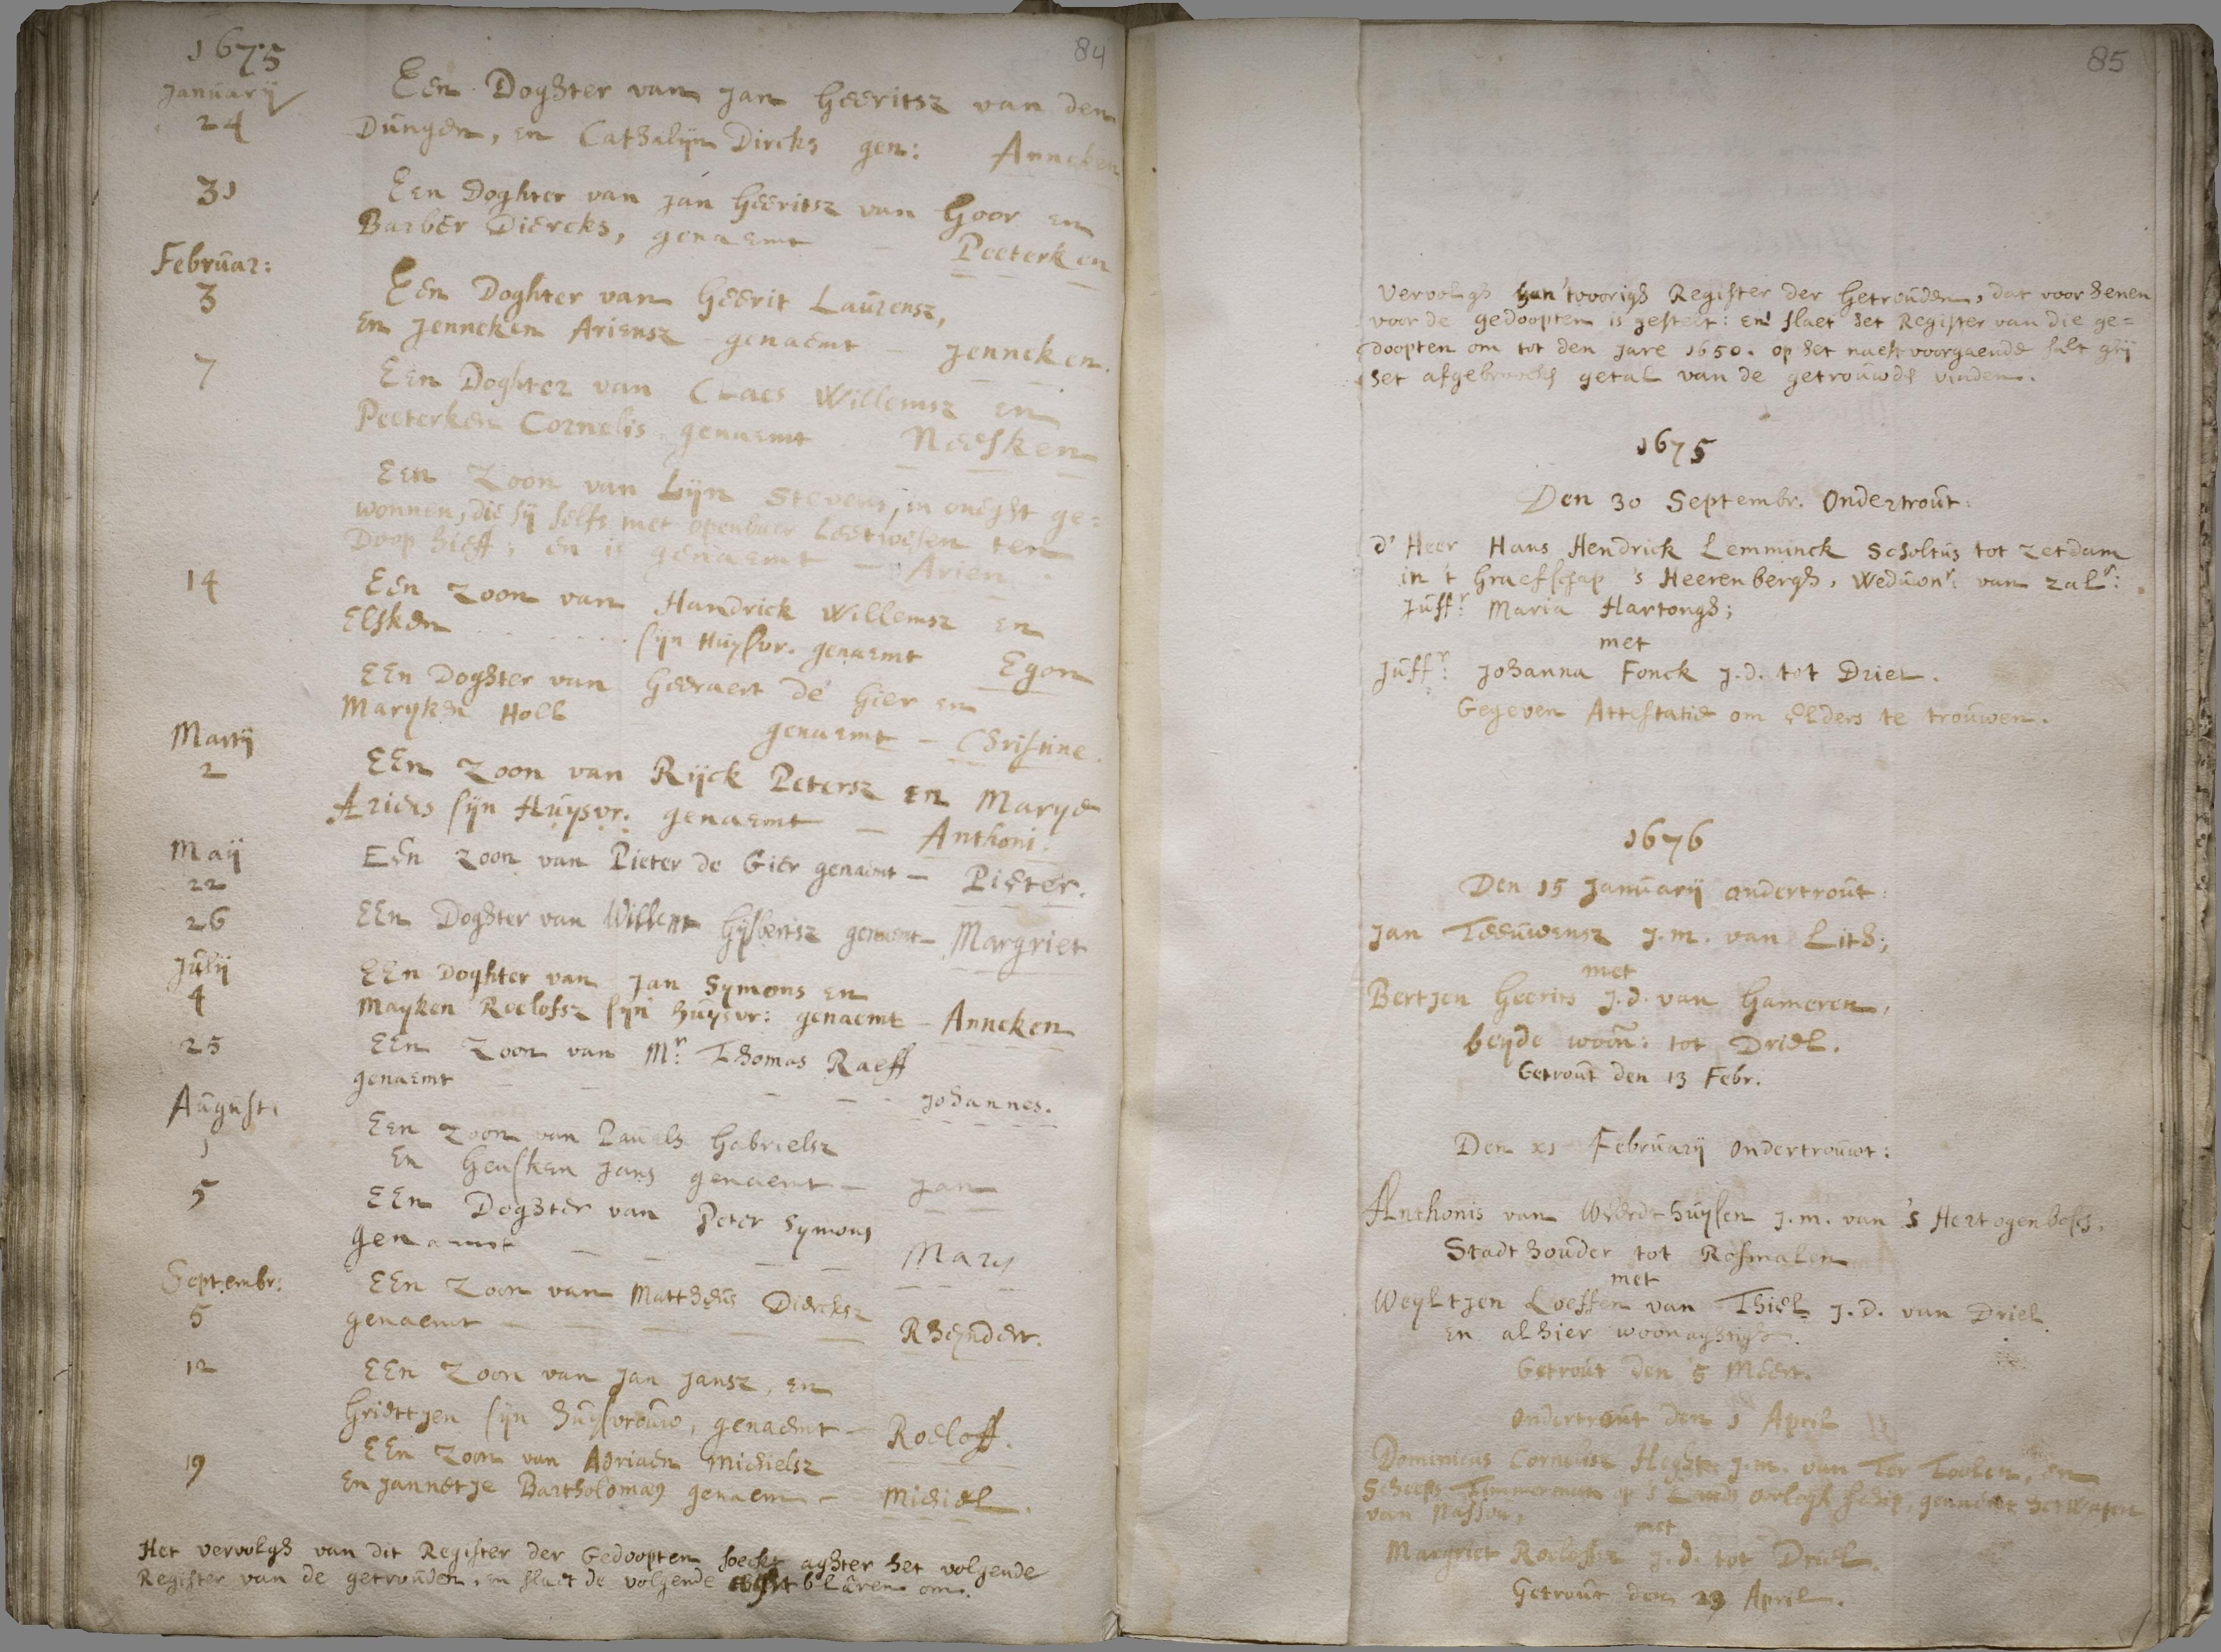 84
1675
January
24
Een Doghter van Jan Geeritsz van den
Dungen, en Cathalijn Dircks gen: Anneken
31
Een Doghter van Jan Geeritsz van Goor en
Barber Diercks, genaemt - Peeterken
Februar:
3
Een Doghter van Geerit Laurensz,
en Jenneken Ariensz genaemt - Jenneken.
7
Een Doghter van Claes Willemsz en
Peeterken Cornelis, genaemt Neesken
Een Zoon van Lijn Stevens, in oneght ge=
wonnen, die sij selfs met openbaer Leetwesen ten
Doop hieff; en is genaemt - Arien.
14
Een Zoon van Handrick Willemsz en
Elsken ........ sijn Huysvr. genaemt Egon
Een Doghter van Geeraert de Gier en
Maryken Holl genaemt - Christine.
Martij
2
Een Zoon van Rijck Petersz en Marye
Ariens sijn Huysvr. genaemt - Anthoni.
Maij
22
Een Zoon van Pieter de Gier genaemt - Pieter.
26
Een Doghter van Willem Gijsbertsz genaemt - Margriet
Julij
4
Een Doghter van Jan Symons en
Mayken Roelofsz sijn huysvr: genaemt - Anneken
25
Een Zoon van Mr: Thomas Raeff
genaemt - - - - Johannes.
August:
1
Een Zoon van Pauels Gabrielsz
en Geusken Jans genaemt - Jan
5
Een Doghter van Peter Symons
genaemt - - - - Mary
Septembr:
5
Een Zoon van Mattheus Diercksz
genaemt - - - - Rheyndert.
12
Een Zoon van Jan Jansz, en
Griettjen sijn huysvrouw, genaemt - Roeloff.
19
Een Zoon van Adriaen Michielsz
en Jannetje Bartholomay genaem - Michiel.
Het vervolgh van dit Register der Gedoopten soeckt aghter het volgende
Register van de getrouden, en slaet de volgende blaren om.
85
Vervolgh van 't voorigh Register der Getrouden, dat voor henen
voor de gedoopten is gestelt: en slaet het Register van die ge=
doopten om tot den jare 1650. op het naest voorgaende sult ghij
het afgebroocke getal van de getrouwde vinden.
1675
Den 30 Septembr. Ondertrout:
d' Heer Hans Hendrick Lemminck Scholtus tot Zetdam
in 't Graefschap 's Heerenbergh, Weduwnr: van Zalr:
Juffr: Maria Hartongh;
met
Juffr: Johanna Fonck J.d. tot Driel.
Gegeven Attestatie om elders te trouwen.
1676
Den 15 January ondertrout:
Jan Teeuwensz J.m. van Lith;
met
Bertjen Geerits J.d. van Gameren,
beyde woon: tot Driel.
Getrout den 13 Febr.
Den xi February Ondertrouwt:
Anthonis van Weerdthuysen J.m. van 's Hertogenbosch,
Stadthouder tot Rosmalen
met
Weyltjen Loeffen van Thiel J.d. van Driel
en alhier woonaghtigh.
Getrout den 5 Meert.
Ondertrout den 1 April
Dominicus Cornelisz J.m. van Ter Toolen, en
Scheeps Timmerman op 's Lands oorlogh schip, genaemt het Wapen
van Nassou,
met
Margriet Roelofsz J.d. tot Driel.
Getrout den 23 April.